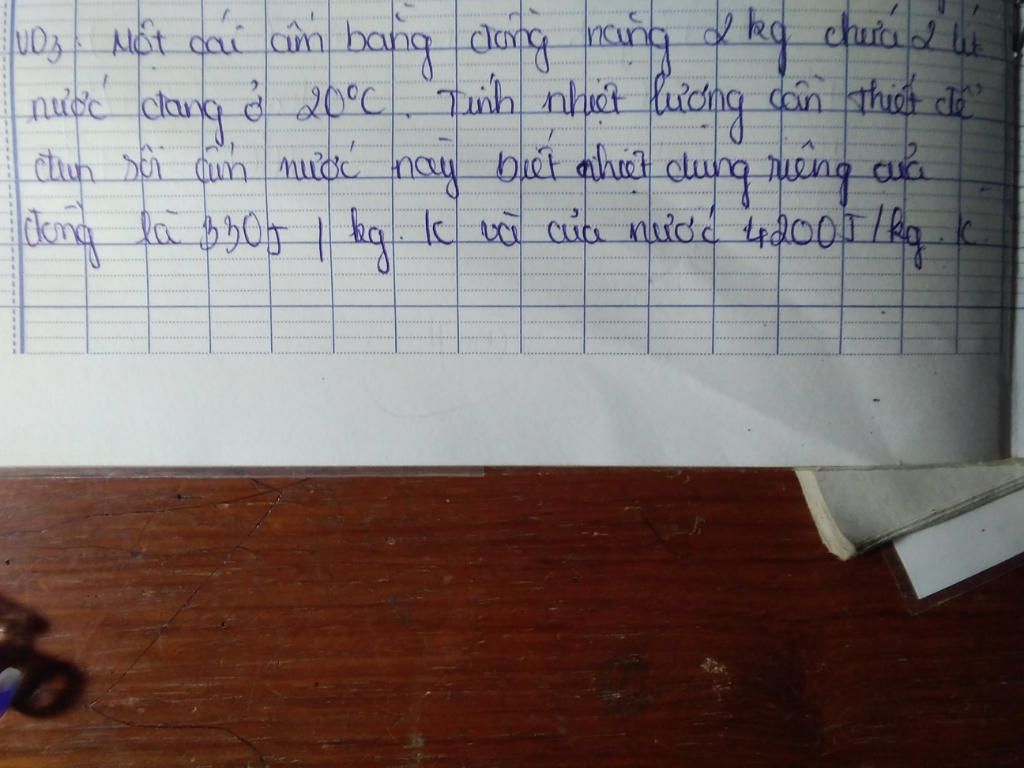 VD3. Một cái ấm bằng đồng nặng 2 kg chứa 2 lít
nước đang ở 20°C. Tính nhiệt lượng cần thiết để
đun sôi ấm nước này biết nhiệt dung riêng của
đồng là 330J / kg. K và của nước 4200J/kg. K